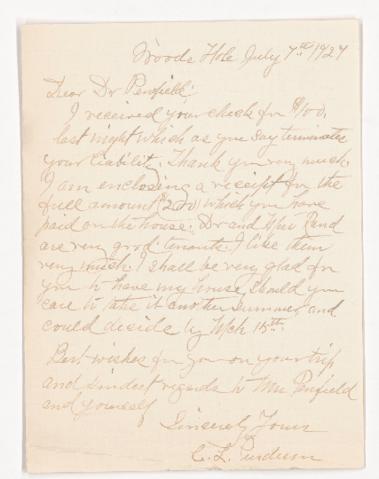 Woods Hole July 7th 1927
Dear Dr Penfield;
I received your check for $100,
last night which as you say terminates
your liability. Thank you very much.
I am enclosing a receipt for the
full amount ($200) which you have
paid on the house. Dr and Mrs Rand
are very good tenants. I like them
very much. I shall be very glad for
you to have my house should you
care to take it another summer and
could decide by Mch 15th.
Best wishes for you on your trip
and kindest regards to Mrs Penfield
and yourself
Sincerely Yours
C. L.